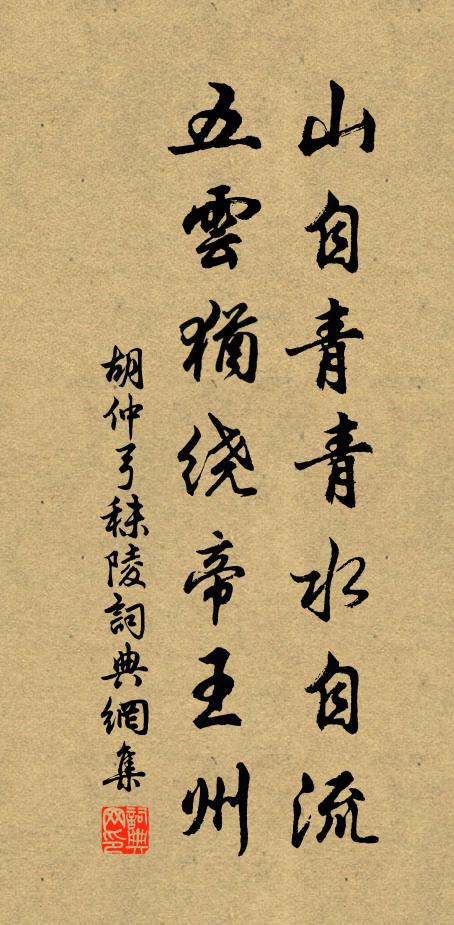 山自青青水自流
五雲猶绕帝王州
胡仲弓秣陵詞典網集
詞典网印